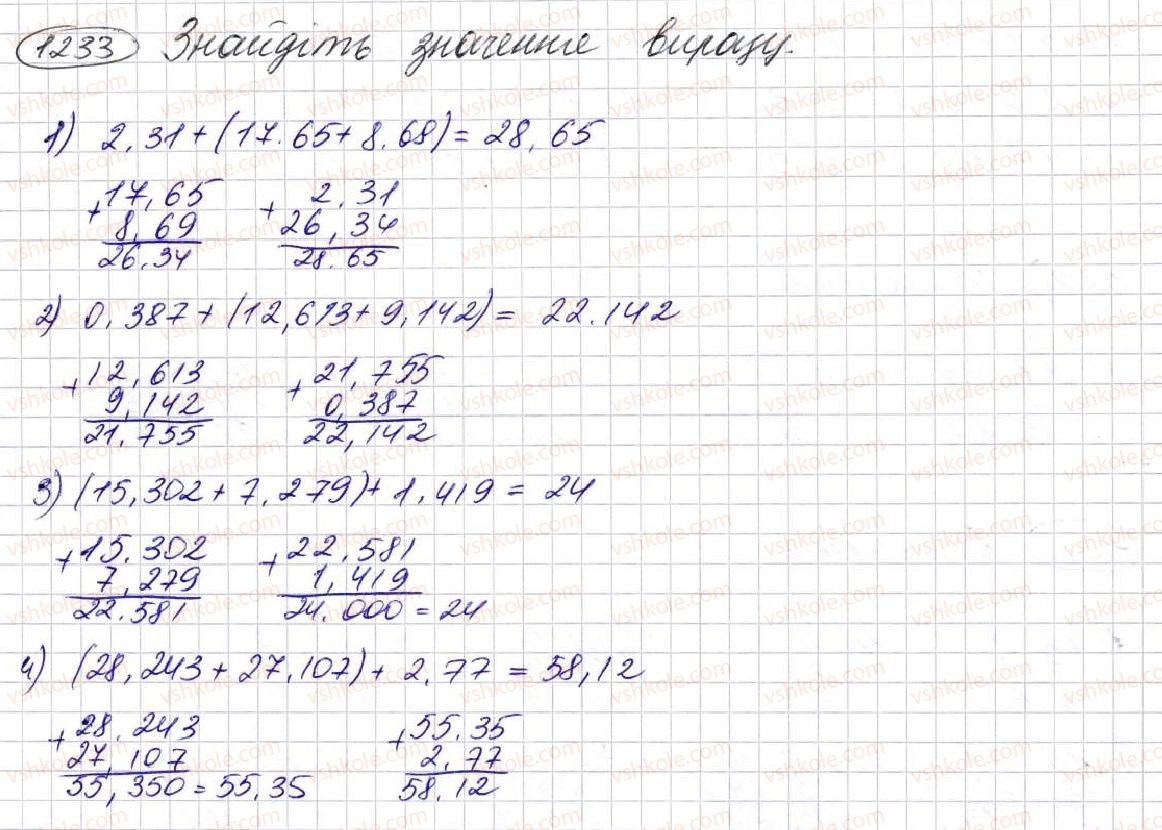 1233 Знайдіть значення виразу.
1) 2,31+(17.65+8.68)=28,65
+17,65 + 2,31
8,69 26,34
26.34 28.65
2) 0,387+(12,613+9,142)= 22.142
+12,613 +21,755
9,142 0,387
21.755 22,142
3) (15,302+7,279)+1,419 = 24
+15.302 +22,581
7,279 1,419
22.581 24.000 = 24
4) (28,243+27,107)+2,77 = 58,12
+28.243 +55.35
27,107 2,77
55,350=55.35 58.12